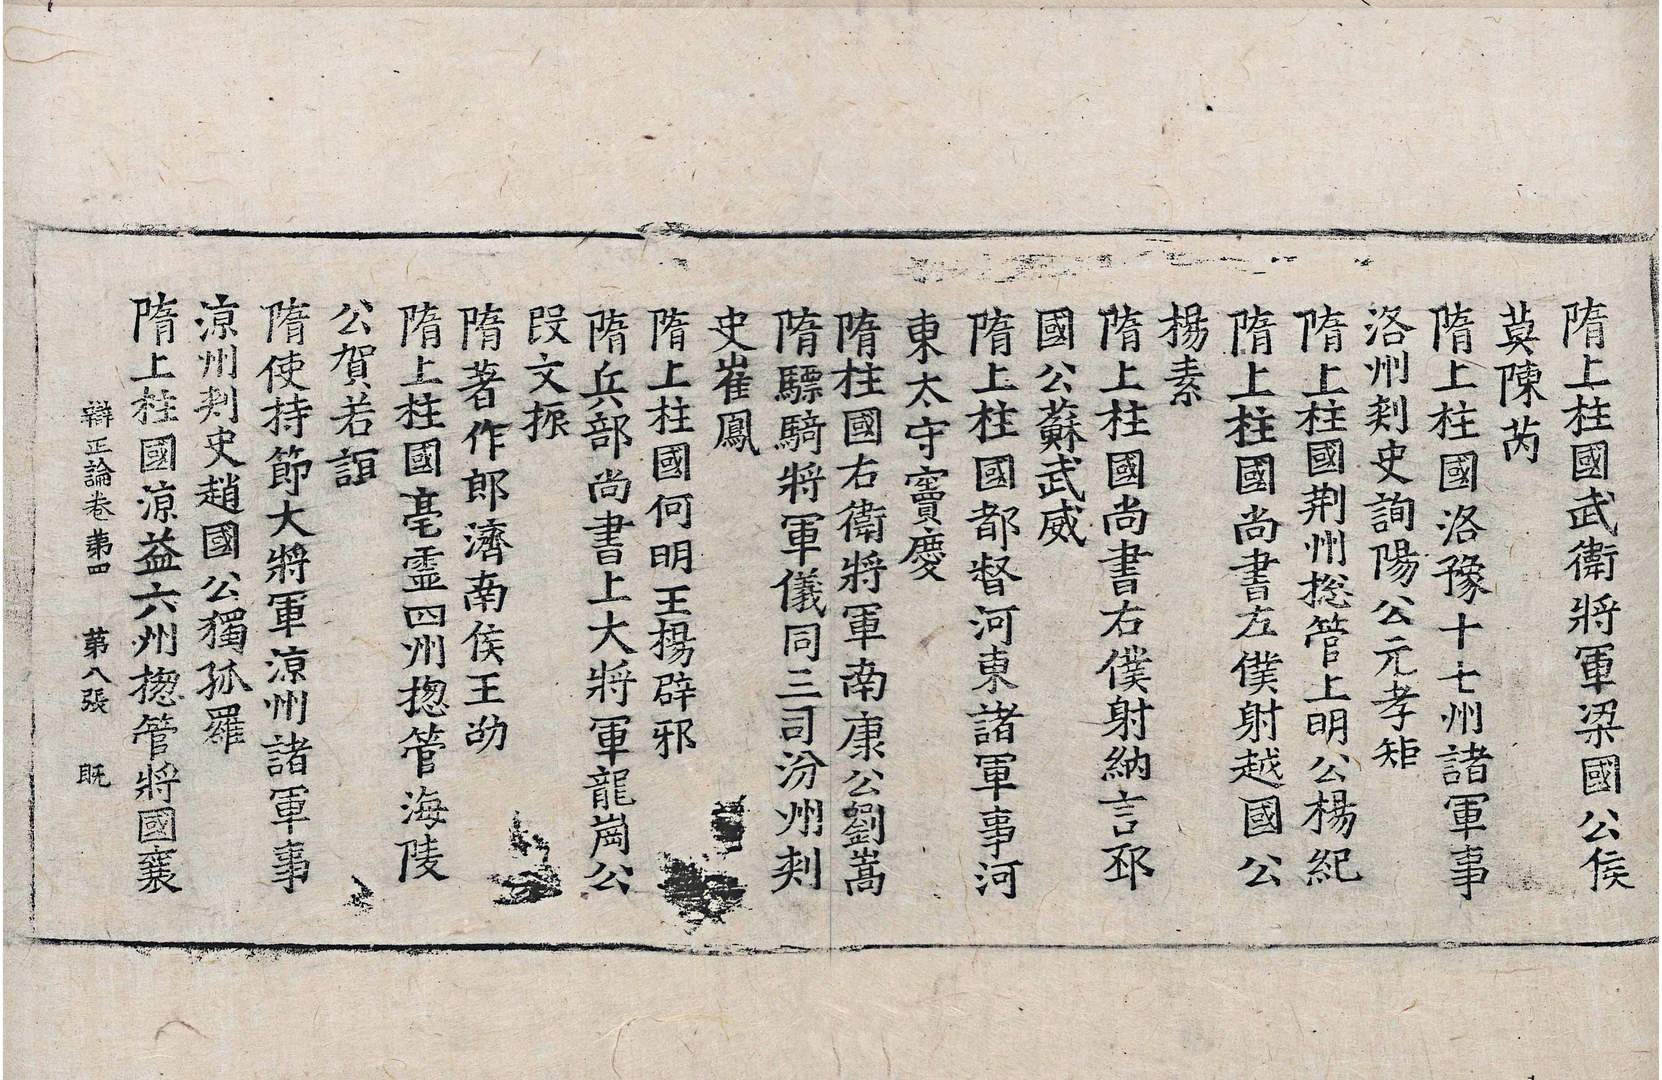 隋上柱國武衛將軍梁國公侯
莫陳芮
隋上柱國洛豫十七州諸軍事
洛州刾史詢陽公元孝矩
隋上柱國荆州揔管上明公楊紀
隋上柱國尚書左僕射越國公
楊素
隋上柱國尚書右僕射納言邳
國公蘇武威
隋上柱國都督河東諸軍事河
東太守竇慶
隋柱國右衛將軍南康公劉嵩
隋驃騎將軍儀同三司汾州刾
史崔鳳
隋上柱國何明王楊辟邪
隋兵部尚書上大將軍龍崗公
段文振
隋著作郎濟南侯王劭
隋上柱國亳霊四州揔管海陵
公賀若誼
隋使持節大將軍涼州諸軍事
涼州刾史趙國公獨孤羅
隋上柱國涼益六州揔管將國襄
辯正論卷苐四 苐八張 既